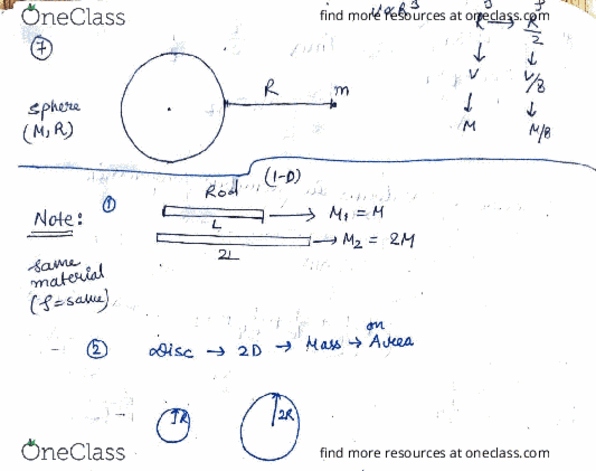 OneClass
find more resources at oneclass.com
V ∝ R³
R → R/2
7
R
m
V
V/8
sphere
(M, R)
M
M/8
Rod
(1-D)
Note:
①
L
→ M₁ = M
2L
→ M₂ = 2M
same
material
(ρ = same)
② Disc → 2D → Mass → on Area
R
2R
OneClass
find more resources at oneclass.com